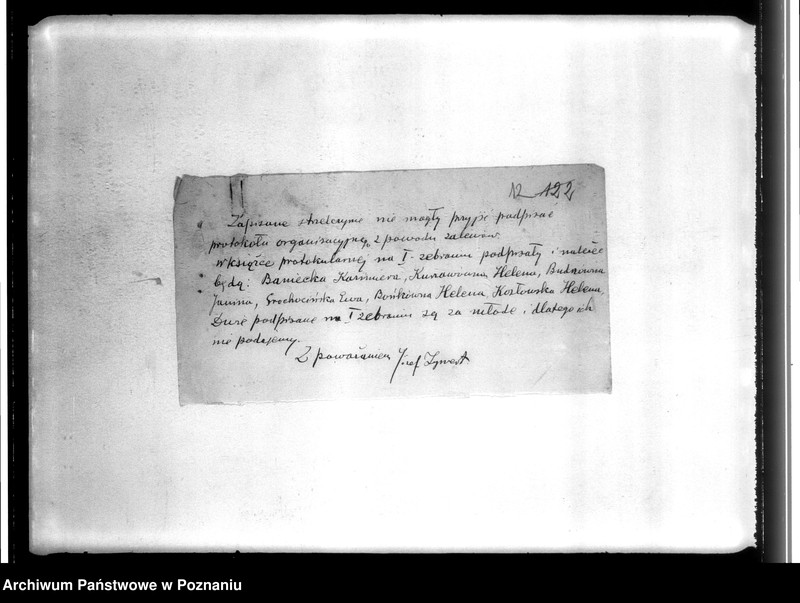 12 122
Zapisane strzelczynie nie mogły przyjść podpisać
protokołu organizacyjnego z powodu zalewów.
W książce protokularnej na I. zebraniu podpisały i należeć
będą: Baniecka Kazimiera, Kunowówna Helena,
Janina, Grochocińska Ewa, Bońkówna Helena, Kozłowska Helena,
podpisane na I zebraniu są za młode i dlatego ich
nie podajemy.
Z poważaniem Józef
Archiwum Państwowe w Poznaniu